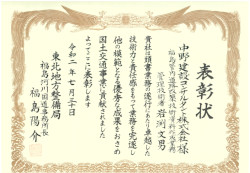 表彰状
中野建設コンサルタント株式会社様
管理技術者 岩渕文男
貴社は頭書業務の遂行にあたり卓越した
技術力と責任感をもって業務を完遂し
他の模範となる優秀な成果をおさめ
国土交通事業に貢献されました
よってここに表彰します
令和二年七月二十日
東北地方整備局
福島河川国道事務所長
福島陽介